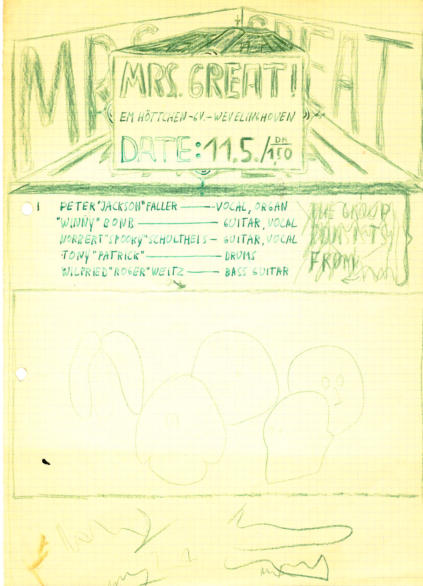 MRS. GREAT
MRS. GREAT!
EM HÖTTCHEN-GV.-WEVELINGHOVEN
DATE: 11.5./DM 1,50
PETER "JACKSON" FALLER — VOCAL, ORGAN
"WINNY" BONB — GUITAR, VOCAL
NORBERT "SPOOKY" SCHULTHEIS — GUITAR, VOCAL
TONY "PATRICK" — DRUMS
WILFRIED "ROGER" WEITZ — BASS GUITAR
THE GROUP
FROM